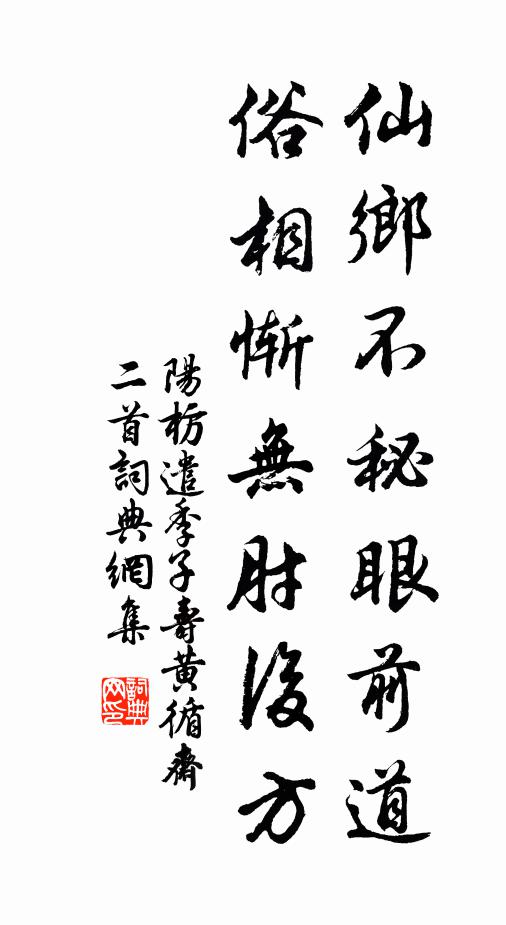 仙鄉不秘眼前道
俗相慚無肘後方
陽枋遣季子壽黃循齋
二首詞典網集
詞典
网印